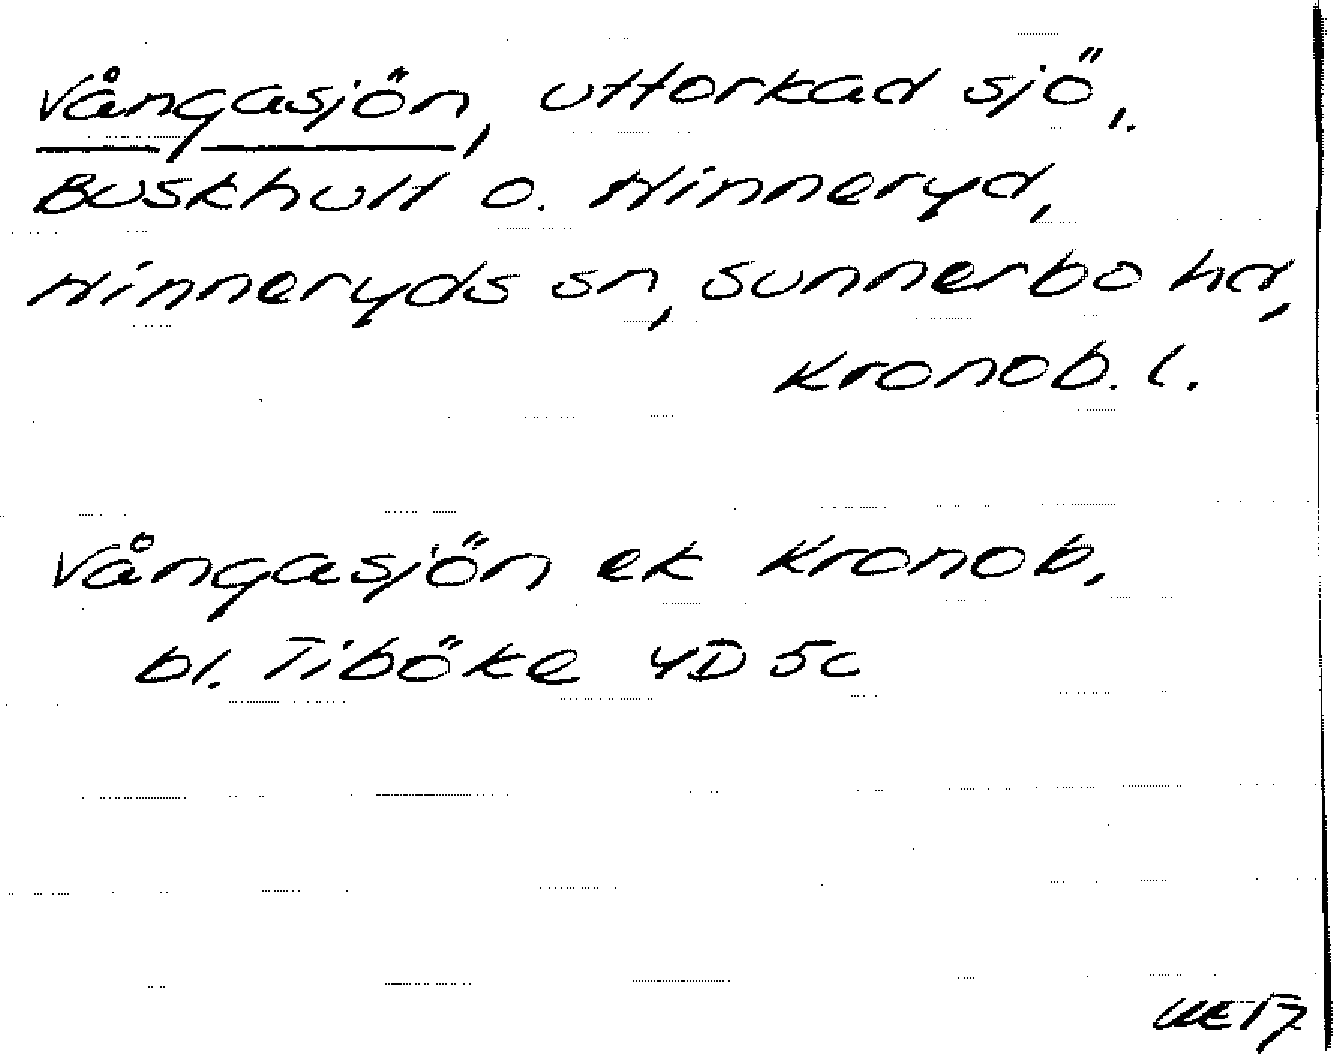 Vångasjön, uttorkad sjö,.
Buskhult o. Hinneryd,
Hinneryds sn, Sunnerbo hd,
Kronob. l.
Vångasjön ek Kronob,
bl. Tiböke 4D 5c